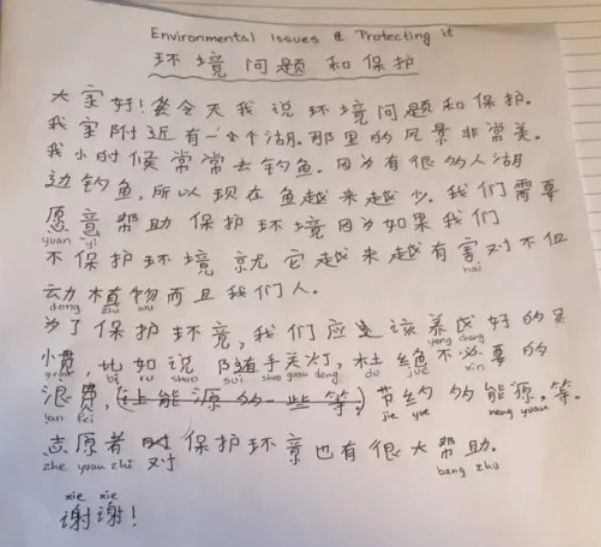 Environmental Issues & Protecting it
环境问题和保护
大家好!今天我说环境问题和保护.
我家附近有一个湖.那里的风景非常美.
我小时候常常去钓鱼.因为有很多人湖
边钓鱼,所以现在鱼越来越少.我们需要
愿意帮助保护环境因为如果我们
yuan yi
不保护环境就它越来越有害对不但
hai
动植物而且我们人.
dong zhi wu
为了保护环境,我们应该养成好的习
yang cheng
惯,比如说随手关灯,杜绝不必要的
guan bi ru shuo sui shou guan deng du jue
浪费,(让能源的一些等.)节约的能源,等.
lan fei jie yue neng yuan
志愿者对保护环境也有很大帮助.
zhe yuan zhi bang zhu
xie xie
谢谢!